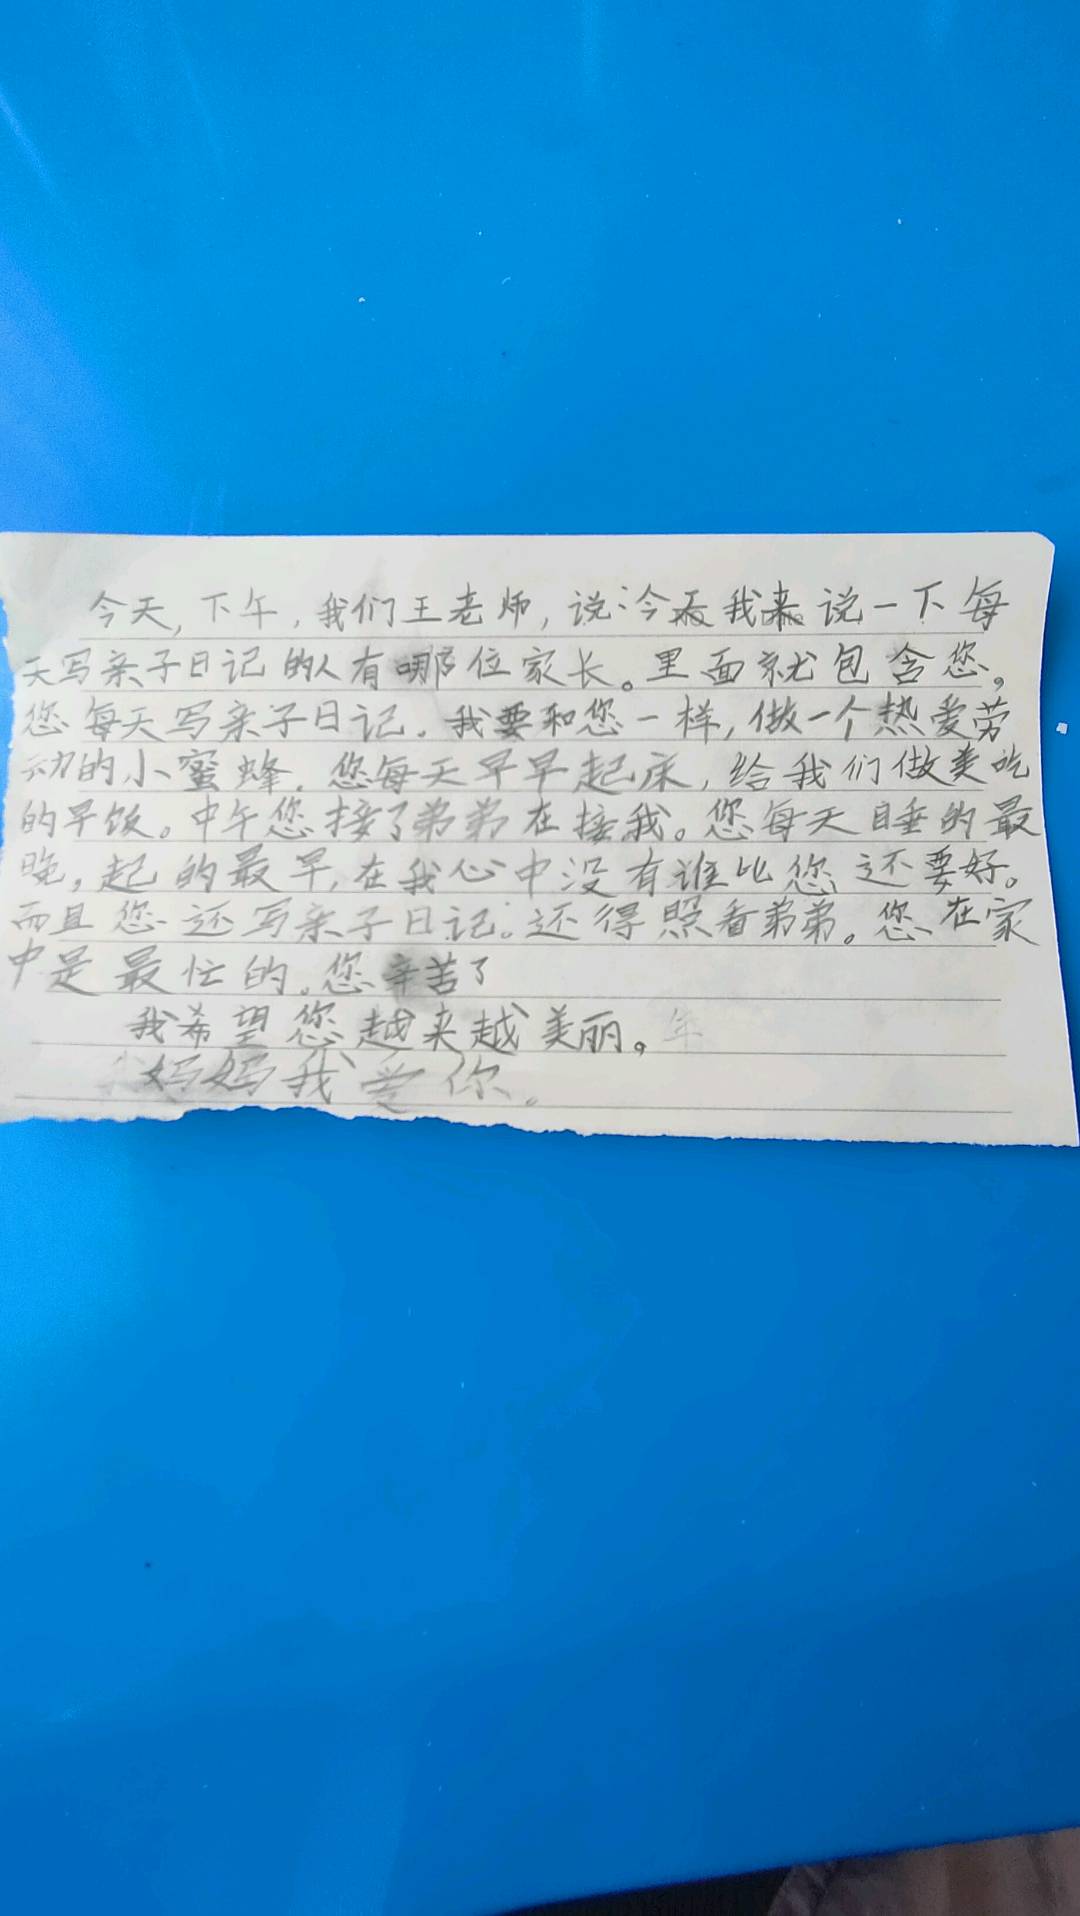 今天,下午,我们王老师,说:今天我来说一下每
天写亲子日记的人有哪位家长。里面就包含您。
您每天写亲子日记。我要和您一样,做一个热爱劳
动的小蜜蜂。您每天早早起床,给我们做美吃
的早饭。中午您接了弟弟在接我。您每天睡的最
晚,起的最早,在我心中没有谁比您还要好。
而且您还写亲子日记。还得照看弟弟。您在家
中是最忙的。您辛苦了
我希望您越来越美丽。年
妈妈我爱你。